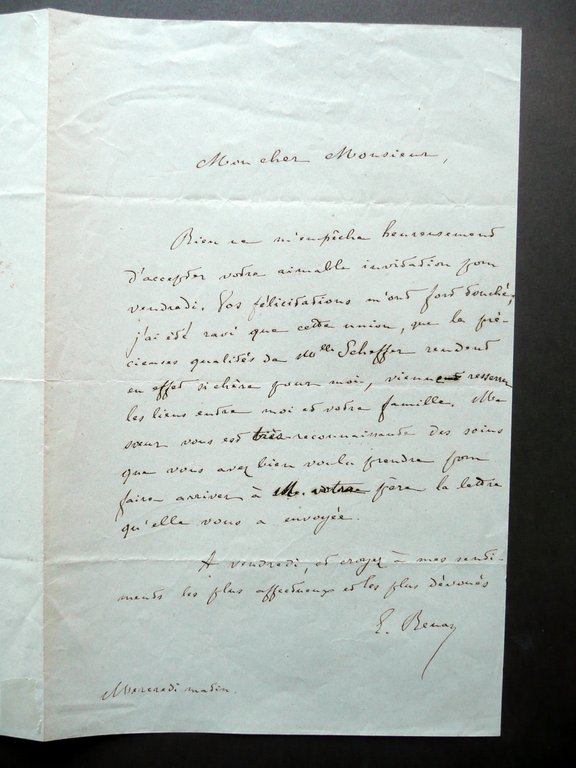 Mon cher Monsieur,
Rien ne m'empêche heureusement
d'accepter votre aimable invitation pour
vendredi. Vos félicitations m'ont fort touché;
j'ai été ravi que cette union, que la pré-
cieuses qualités de Mlle Scheffer rendent
en effet si chère pour moi, vienne resserrer
les liens entre moi et votre famille. Ma
sœur vous est très reconnaissante des soins
que vous avez bien voulu prendre pour
faire arriver à M. votre père la lettre
qu'elle vous a envoyée.
A vendredi, et croyez à mes senti-
ments les plus affectueux et les plus dévoués
E. Renan
Mercredi matin.